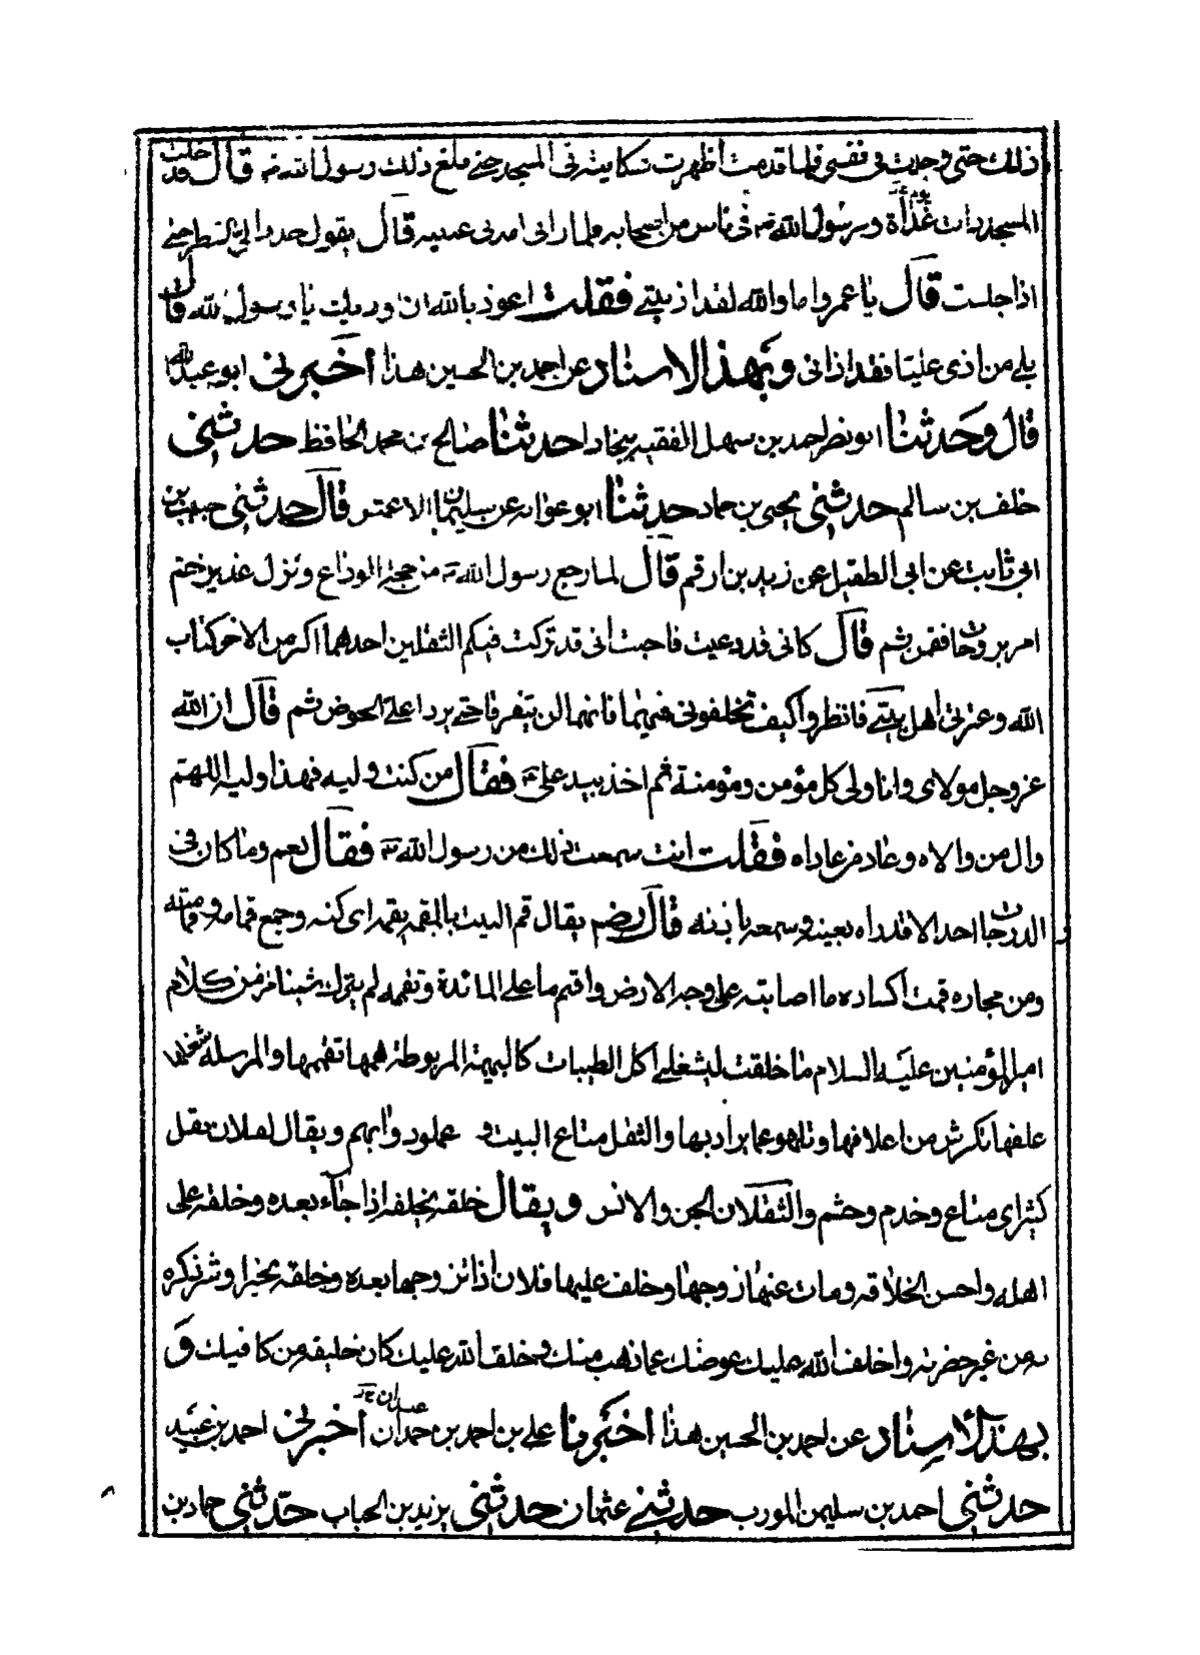 ذلك حتى وجدت في نفسي فلما قدمت اظهرت شكايته في المسجد حتى بلغ ذلك رسول الله قال فدخلت
المسجد ذات غداة ورسول الله في ناس من اصحابه فلما راني امدني عينيه قال يقول حدد الي النظر حتى
اذا جلست قال يا عمرو اما والله لقد اذيتني فقلت اعوذ بالله ان اوذيك يا رسول الله قال
بلى من اذى عليا فقد اذاني وبهذا الاسناد عن احمد بن الحسين هذا اخبرني ابو عبد الله
قال وحدثنا ابو نصر احمد بن سهل الفقيه ببخارا حدثنا صالح بن محمد الحافظ حدثني
خلف بن سالم حدثني يحيى بن حماد حدثنا ابو عوانه عن سليمان الاعمش قال حدثني حبيب بن
ابي ثابت عن ابي الطفيل عن زيد بن ارقم قال لما رجع رسول الله من حجة الوداع ونزل غدير خم
امر بدوحات فقمن ثم قال كاني قد دعيت فاجبت اني قد تركت فيكم الثقلين احدهما اكبر من الاخر كتاب
الله وعترتي اهل بيتي فانظروا كيف تخلفوني فيهما فانهما لن يتفرقا حتى يردا على الحوض ثم قال ان الله
عز وجل مولاى وانا ولى كل مؤمن ومؤمنة ثم اخذ بيد على فقال من كنت وليه فهذا وليه اللهم
وال من والاه وعاد من عاداه فقلت انت سمعت ذلك من رسول الله فقال نعم وما كان في
الدوحات احد الا قد راه بعينه وسمعه باذنه قال رضم يقال قم البيت بالمقمه يقمه اى كنسه وجمع قمامه وقمامته
ومن مجازه قمت اكساده ما اصابته على وجه الارض واقتم ما على المائدة وتقممه لم يترك شيئا ومن كلام
امير المؤمنين عليه السلام ما خلقت ليشغلني اكل الطيبات كالبهيمة المربوطة همها تقممها والمرسله شغلها
علفها تكرش من اعلافها وتلهو عما يراد بها والثقل متاع البيت و ودوابهم ويقال لفلان ثقل
كثير اى متاع وخدم وحشم والثقلان الجن والانس ويقال خلفه يخلفه اذا جاء بعده وخلفه على
اهله واحسن الخلافه ومات عنها زوجها وخلف عليها فلان اذا تزوجها بعده وخلفه بخير او شر ذكره
من غير حضرته واخلف الله عليك عوضك عما ذهب منك وخلف الله عليك كان خليفه من كافيك و
بهذا الاسناد عن احمد بن الحسين هذا اخبرنا على بن احمد بن حمدان عبدان اخبرني احمد بن عبيد
حدثني احمد بن سليمن المودب حدثني عثمان حدثني يزيد بن الحباب حدثني حماد بن